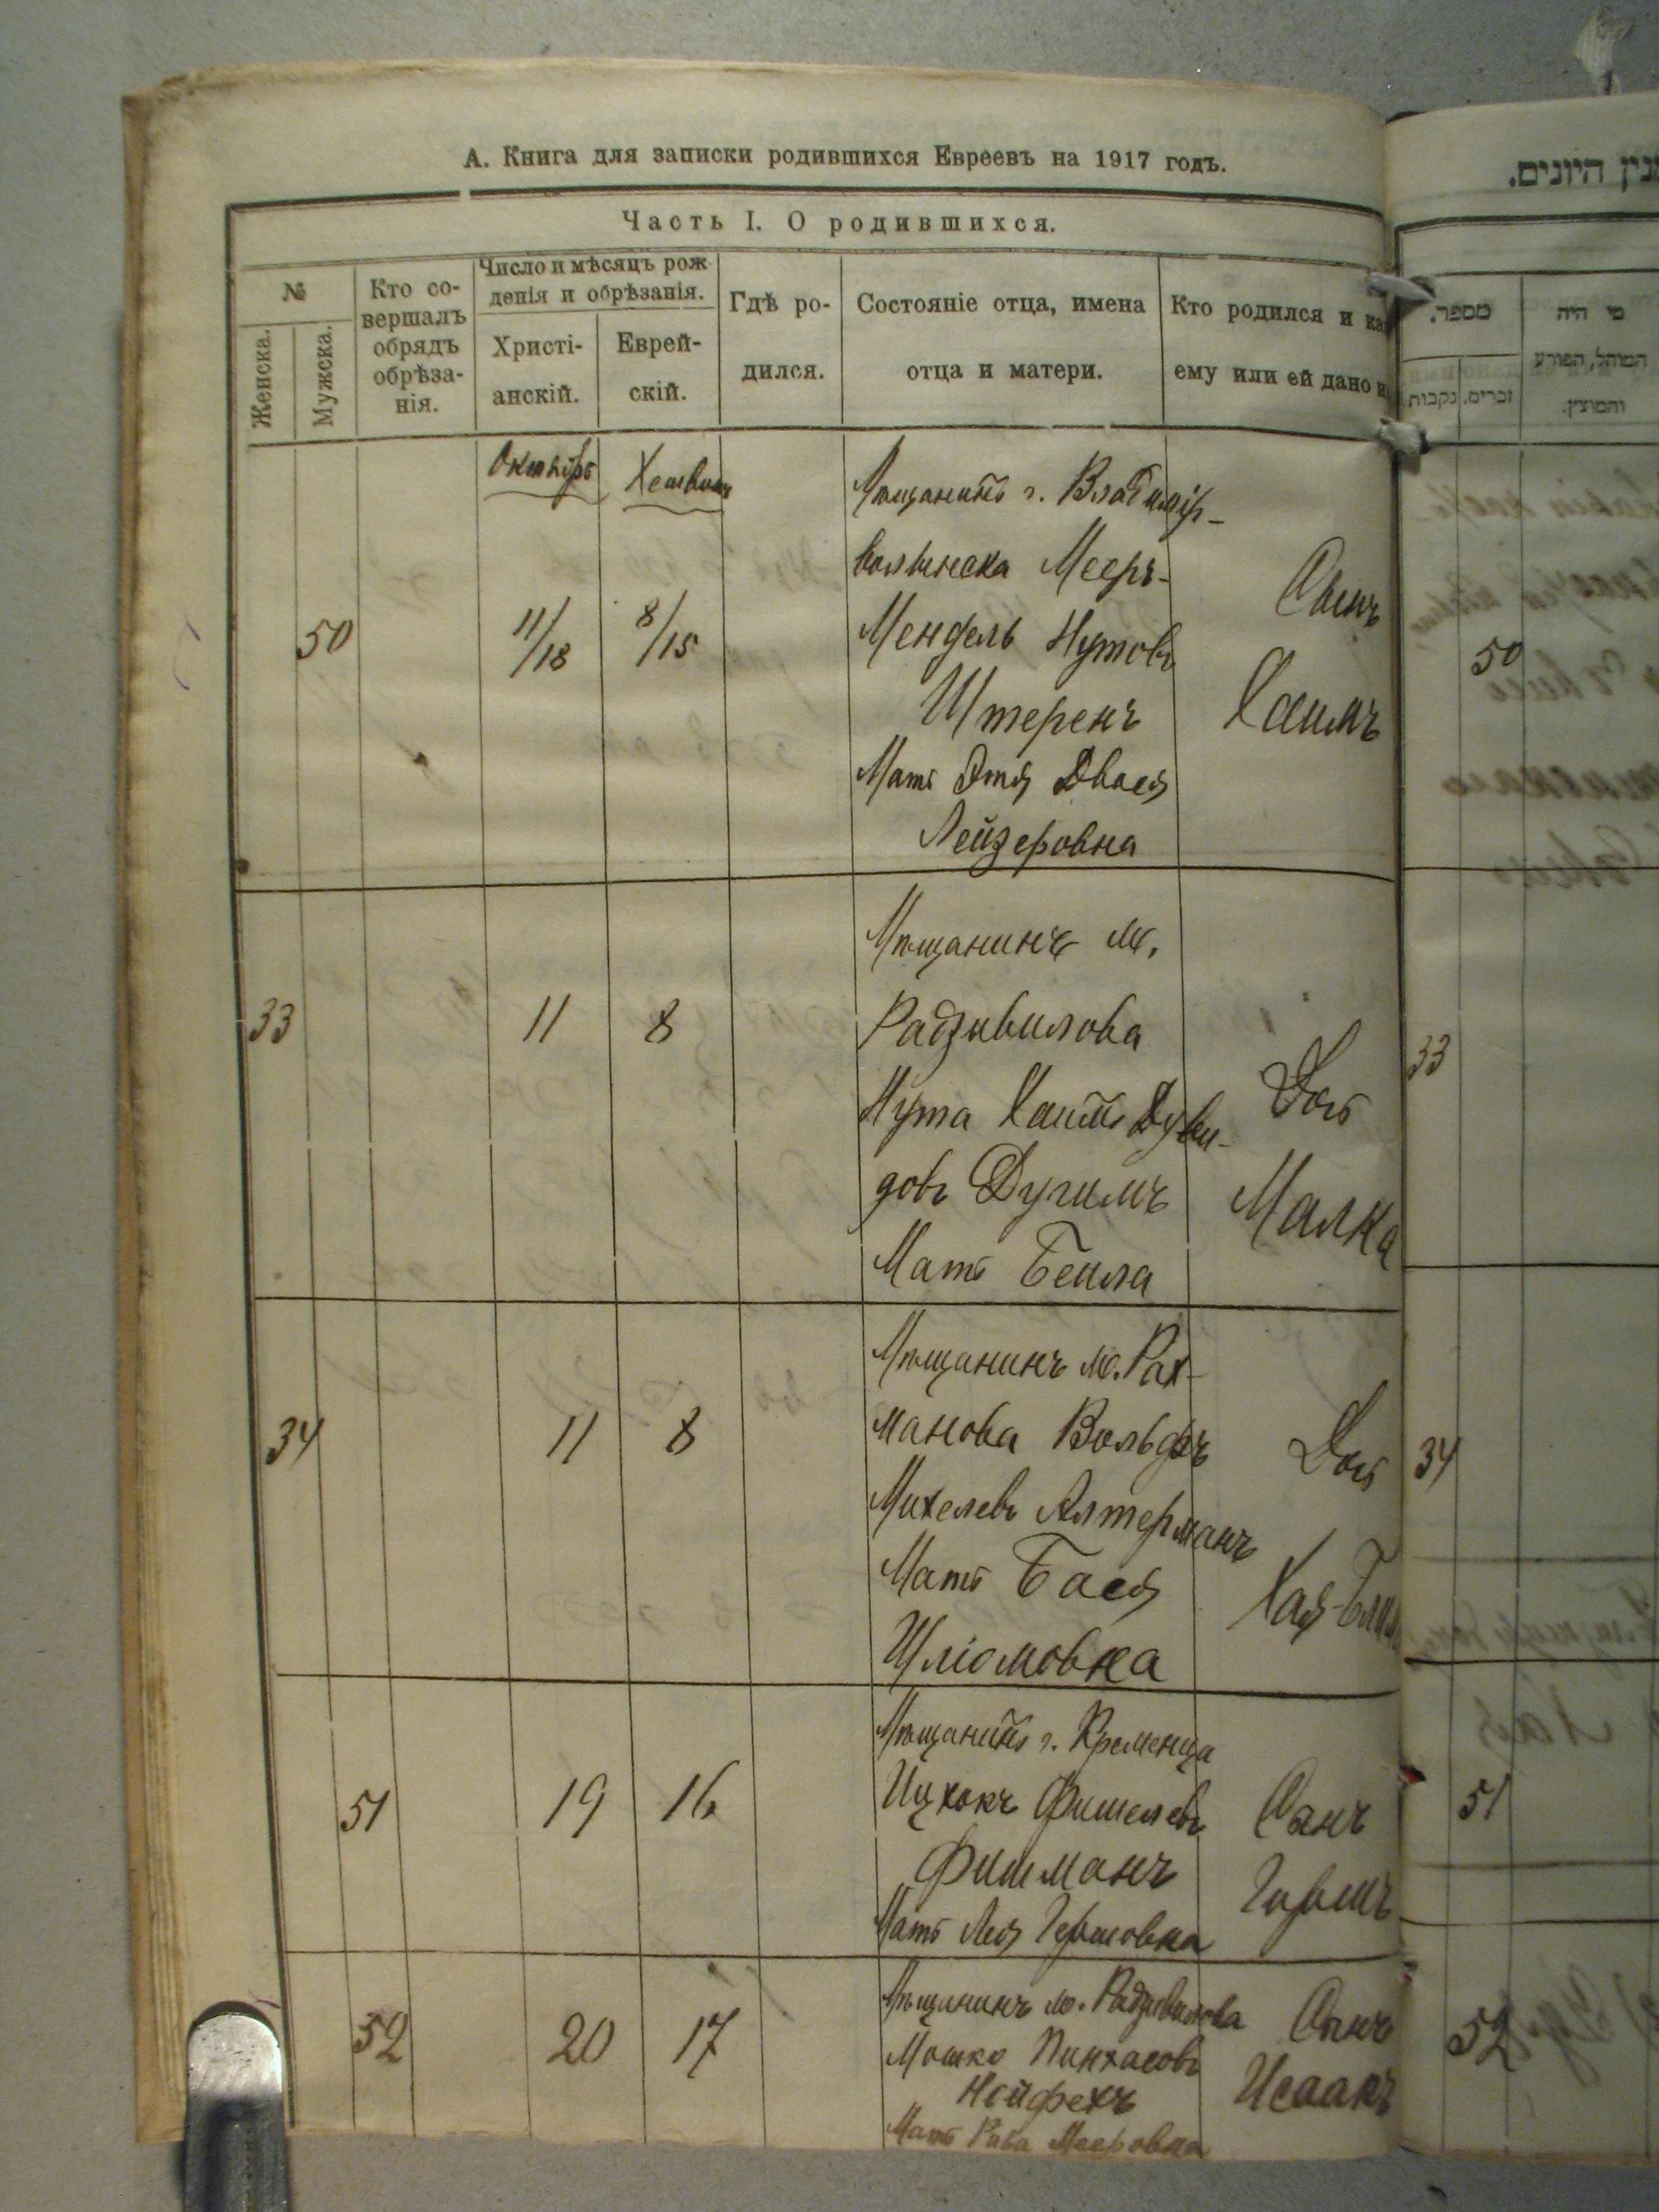 А. Книга для записки родившихся Евреевъ на 1917 годъ.
Часть I. О родившихся.
№
Женска.
Мужска.
Кто со-
вершалъ
обрядъ
обрѣза-
нія.
Число и мѣсяцъ рож
денія и обрѣзанія.
Христі-
анскій.
Еврей-
скій.
Гдѣ ро-
дился.
Состояніе отца, имена
отца и матери.
Кто родился и ка
ему или ей дано и
Октябрь
Хешванъ
50
11/18
8/15
Мѣщанинъ г. Владимір-
волынска Мееръ-
Мендель Нутовъ
Штеренъ
Мать Этя Двося
Лейзеровна
Сынъ
Хаимъ
33
11
8
Мѣщанинъ м.
Радзивилова
Нута Хаимъ Дуви-
довъ Дугимъ
Мать Бейла
Дочь
Малка
34
11
8
Мѣщанинъ м. Рах-
манова Вольфъ
Михелевъ Алтерманъ
Мать Бася
Шліомовна
Дочь
Хая-
51
19
16
Мѣщанинъ г. Кременца
Ицхокъ Фишелевъ
Фишманъ
Мать Лея Гершовна
Сынъ
Гершъ
52
20
17
Мѣщанинъ м. Радзивилова
Мошко Пинхасовъ
Нойфехъ
Мать Рива Мееровна
Сынъ
Исаакъ
נין היונים.
מספר.
זכרים.
נקבות.
מי היה
המוהל, הפורע
והמוצץ.
50
33
34
51
52